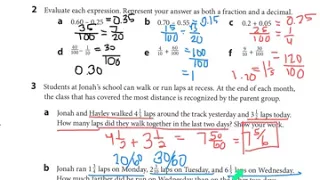 2 Evaluate each expression. Represent your answer as both a fraction and a decimal.
a 0.60 − 0.25 = 0.35
35/100 = 7/20
b 0.70 = 0.55 = 0.15
15/100 = 3/20
c 0.2 + 0.05 = 0.25
25/100 = 1/4
d = 30/100
0.30
e 4/10 + 60/100
100/100
= 1
f 9/10 + 30/100 = 120/100
1.20
3 Students at Jonah's school can walk or run laps at recess. At the end of each month,
the class that has covered the most distance is recognized by the parent group.
a Jonah and Hayley walked 4 laps around the track yesterday and 3 laps today.
How many laps did they walk together in the last two days? Show your work.
4 1/2 + 3 1/2 = 7 50/100 = 7 5/6
20/60 30/60
b Jonah ran 1 laps on Monday, 2 laps on Tuesday, and 6 laps on Wednesday.
How much farther did he run on Wednesday than on the other two days